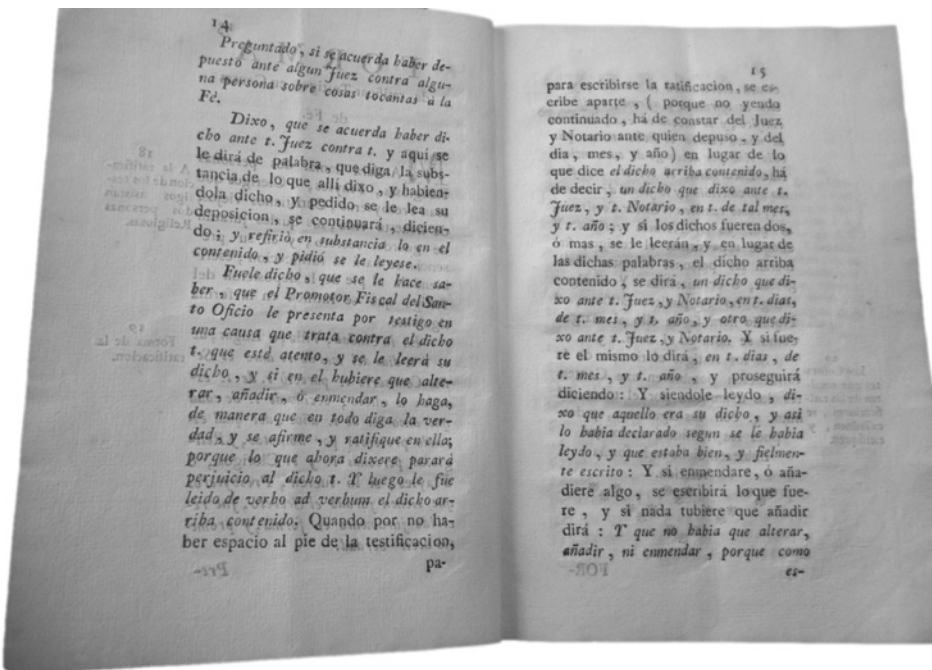 14
Preguntado, si se acuerda haber de-
puesto ante algun Juez contra algu-
na persona sobre cosas tocantas á la
Fé.
Dixo, que se acuerda haber di-
cho ante t. Juez contra t. y aquí se
le dirá de palabra, que diga la subs-
tancia de lo que allí dixo, y habien-
dola dicho, y pedido se le lea su
deposicion, se continuará, dicien-
do; y refirió en substancia lo en el
contenido, y pidió se le leyese.
Fuele dicho, que se le hace sa-
ber, que el Promotor Fiscal del San-
to Oficio le presenta por testigo en
una causa que trata contra el dicho
t. que esté atento, y se le leerá su
dicho, y si en el hubiere que alte-
rar, añadir, ó enmendar, lo haga,
de manera que en todo diga la ver-
dad, y se afirme, y ratifique en ella;
porque lo que ahora dixere parará
perjuicio al dicho t. Y luego le fue
leido de verbo ad verbum el dicho ar-
riba contenido. Quando por no ha-
ber espacio al pie de la testificacion,
pa-
15
para escribirse la ratificacion, se es-
cribe aparte, (porque no yendo
continuado, há de constar del Juez
y Notario ante quien depuso, y del
dia, mes, y año) en lugar de lo
que dice el dicho arriba contenido, há
de decir, un dicho que dixo ante t.
Juez, y t. Notario, en t. de tal mes,
y t. año; y si los dichos fueren dos,
ó mas, se le leerán, y en lugar de
las dichas palabras, el dicho arriba
contenido, se dirá, un dicho que di-
xo ante t. Juez, y Notario, en t. dias,
de t. mes, y t. año, y otro que di-
xo ante t. Juez, y Notario. Y si fue-
re el mismo lo dirá, en t. dias, de
t. mes, y t. año, y proseguirá
diciendo: Y siendole leydo, di-
xo que aquello era su dicho, y asi
lo habia declarado segun se le habia
leydo, y que estaba bien, y fielmen-
te escrito: Y si enmendare, ó aña-
diere algo, se escribirá lo que fue-
re, y si nada tubiere que añadir
dirá: Y que no habia que alterar,
añadir, ni enmendar, porque como
es-